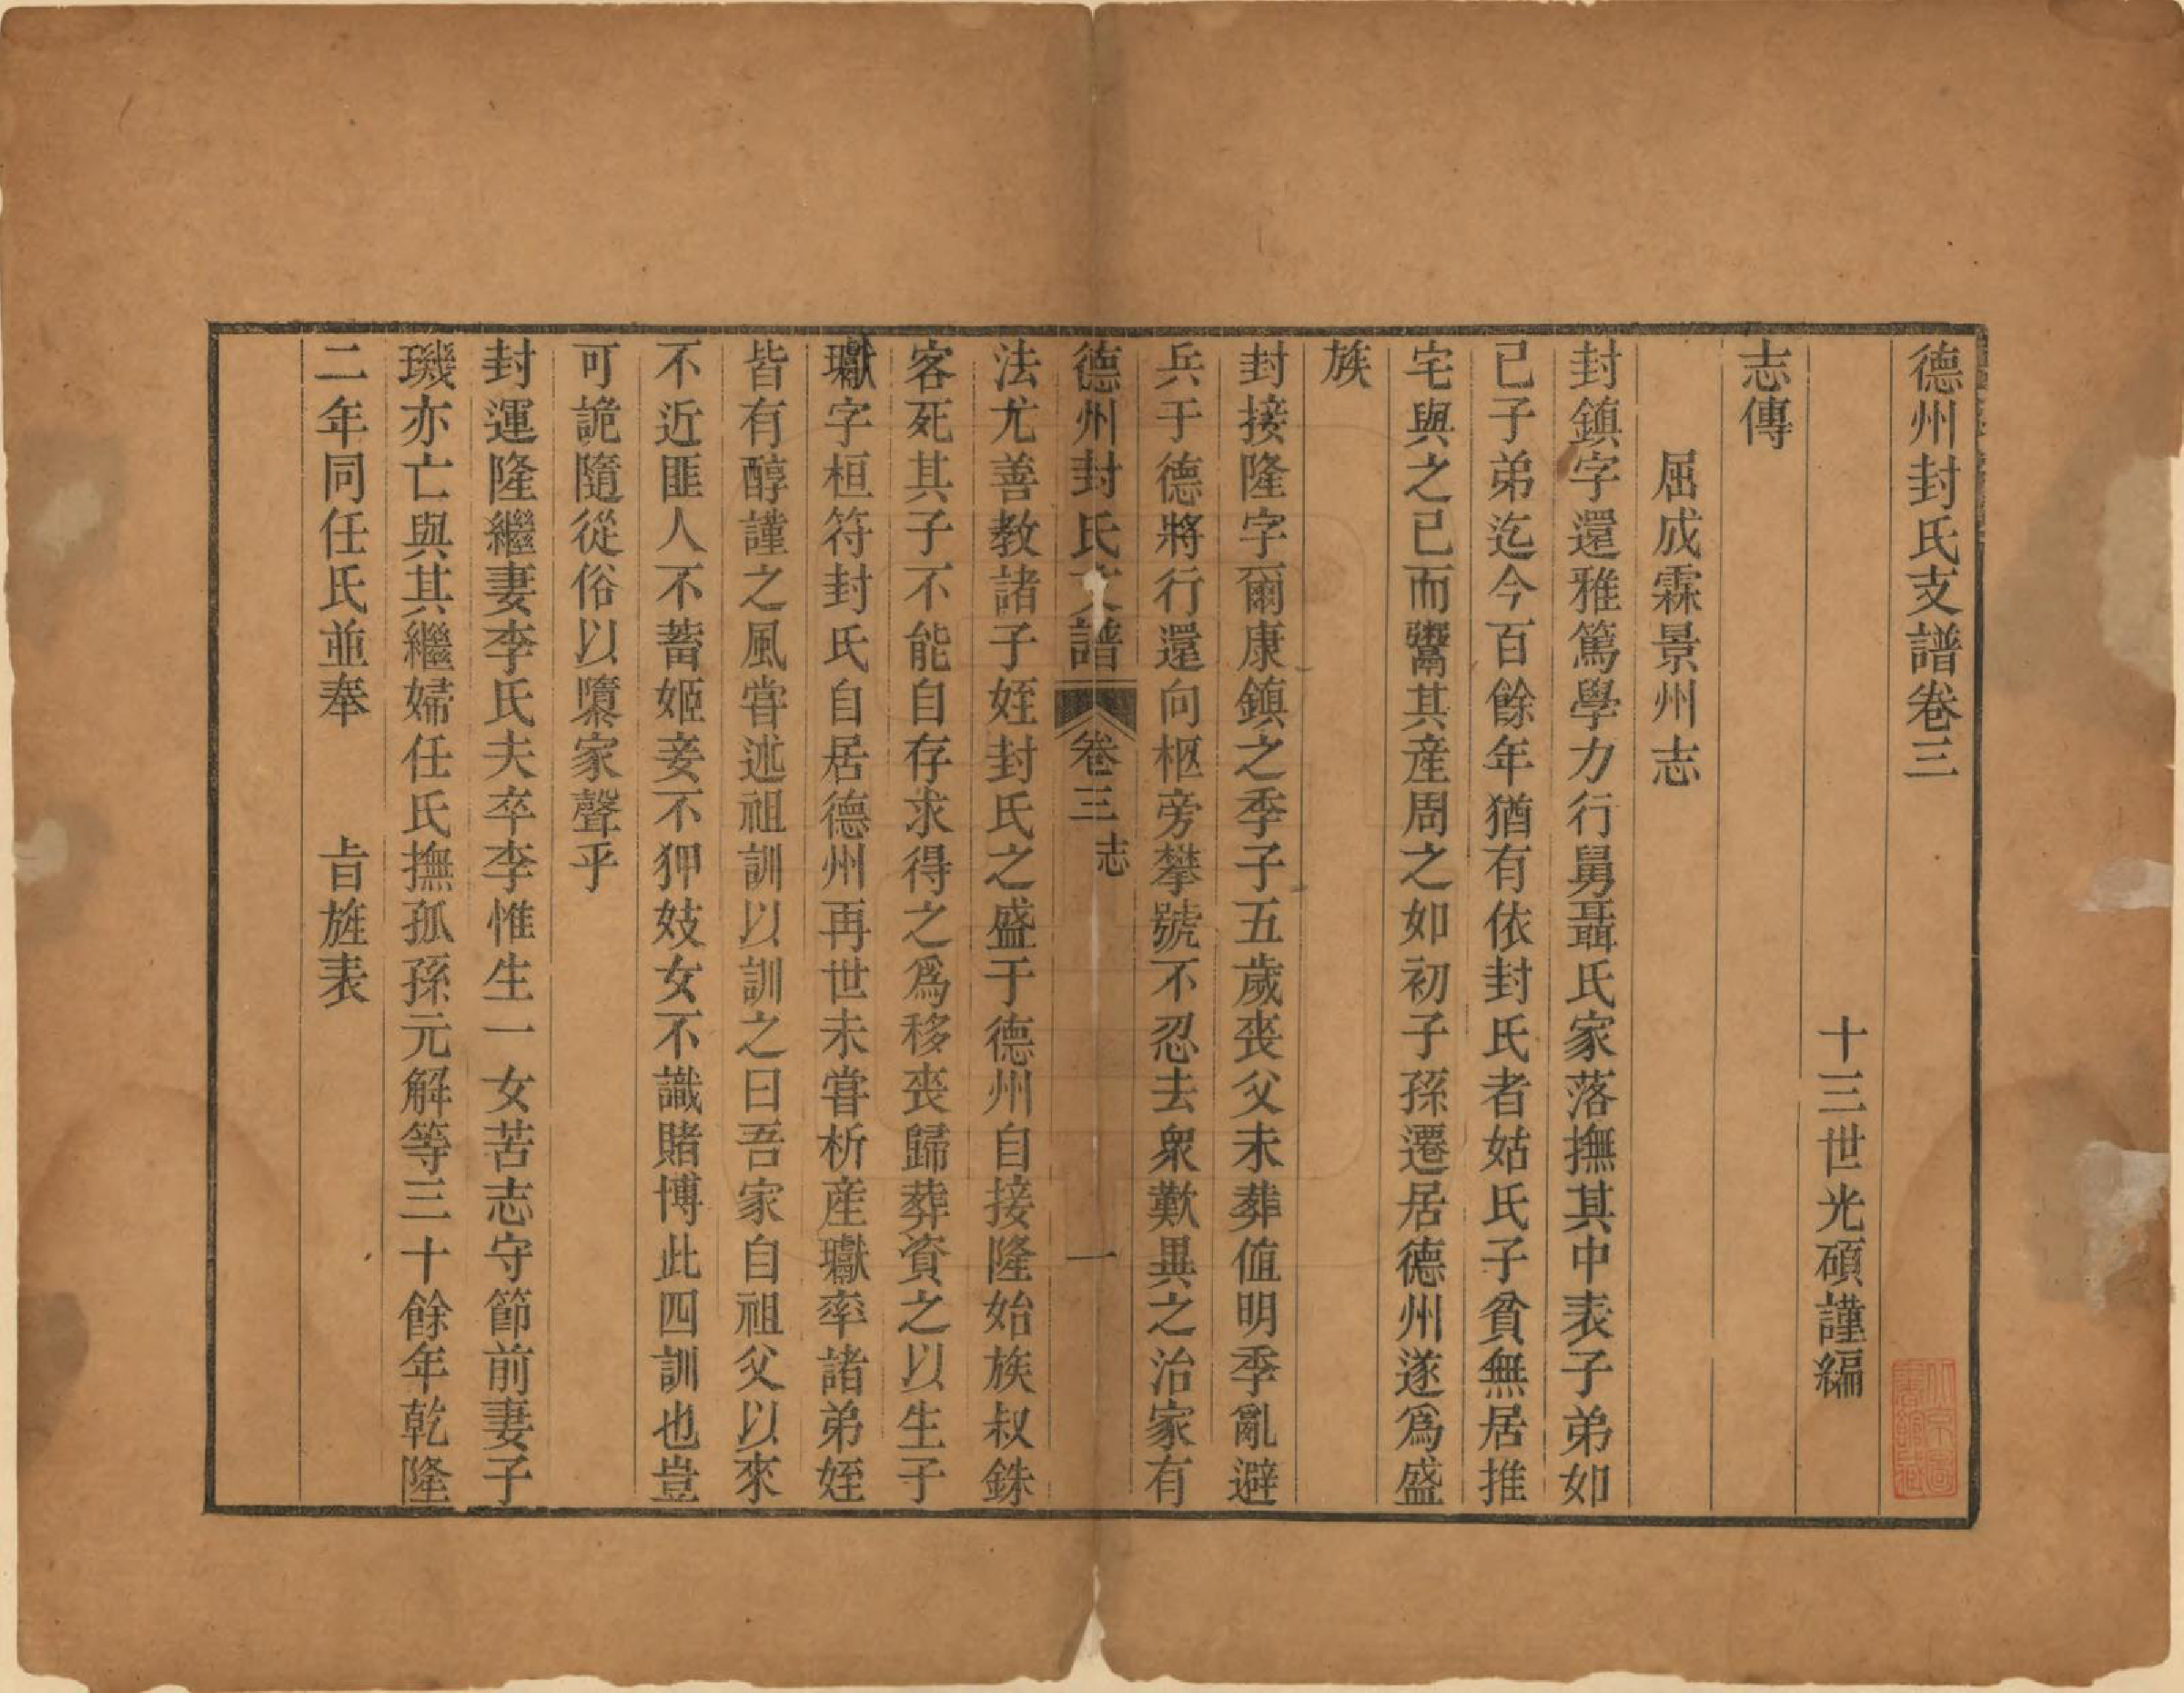 德州封氏支譜卷三
十三世光碩謹編
志傳
屈成霖景州志
封鎮字還雅篤學力行舅聶氏家落撫其中表子弟如
己子弟迄今百餘年猶有依封氏者姑氏子貧無居推
宅與之已而鬻其產周之如初子孫遷居德州遂爲盛
族
封接隆字爾康鎮之季子五歲喪父未葬值明季亂避
兵于德將行還向柩旁攀號不忍去衆歎異之治家有
德州封氏支譜 卷三 志 一
法尤善教諸子姪封氏之盛于德州自接隆始族叔銖
客死其子不能自存求得之爲移喪歸葬資之以生子
瓛字桓符封氏自居德州再世未甞析產瓛率諸弟姪
皆有醇謹之風甞述祖訓以訓之曰吾家自祖父以來
不近匪人不蓄姬妾不狎妓女不識賭博此四訓也豈
可詭隨從俗以隳家聲乎
封運隆繼妻李氏夫卒李惟生一女苦志守節前妻子
璣亦亡與其繼婦任氏撫孤孫元解等三十餘年乾隆
二年同任氏並奉 旨旌表